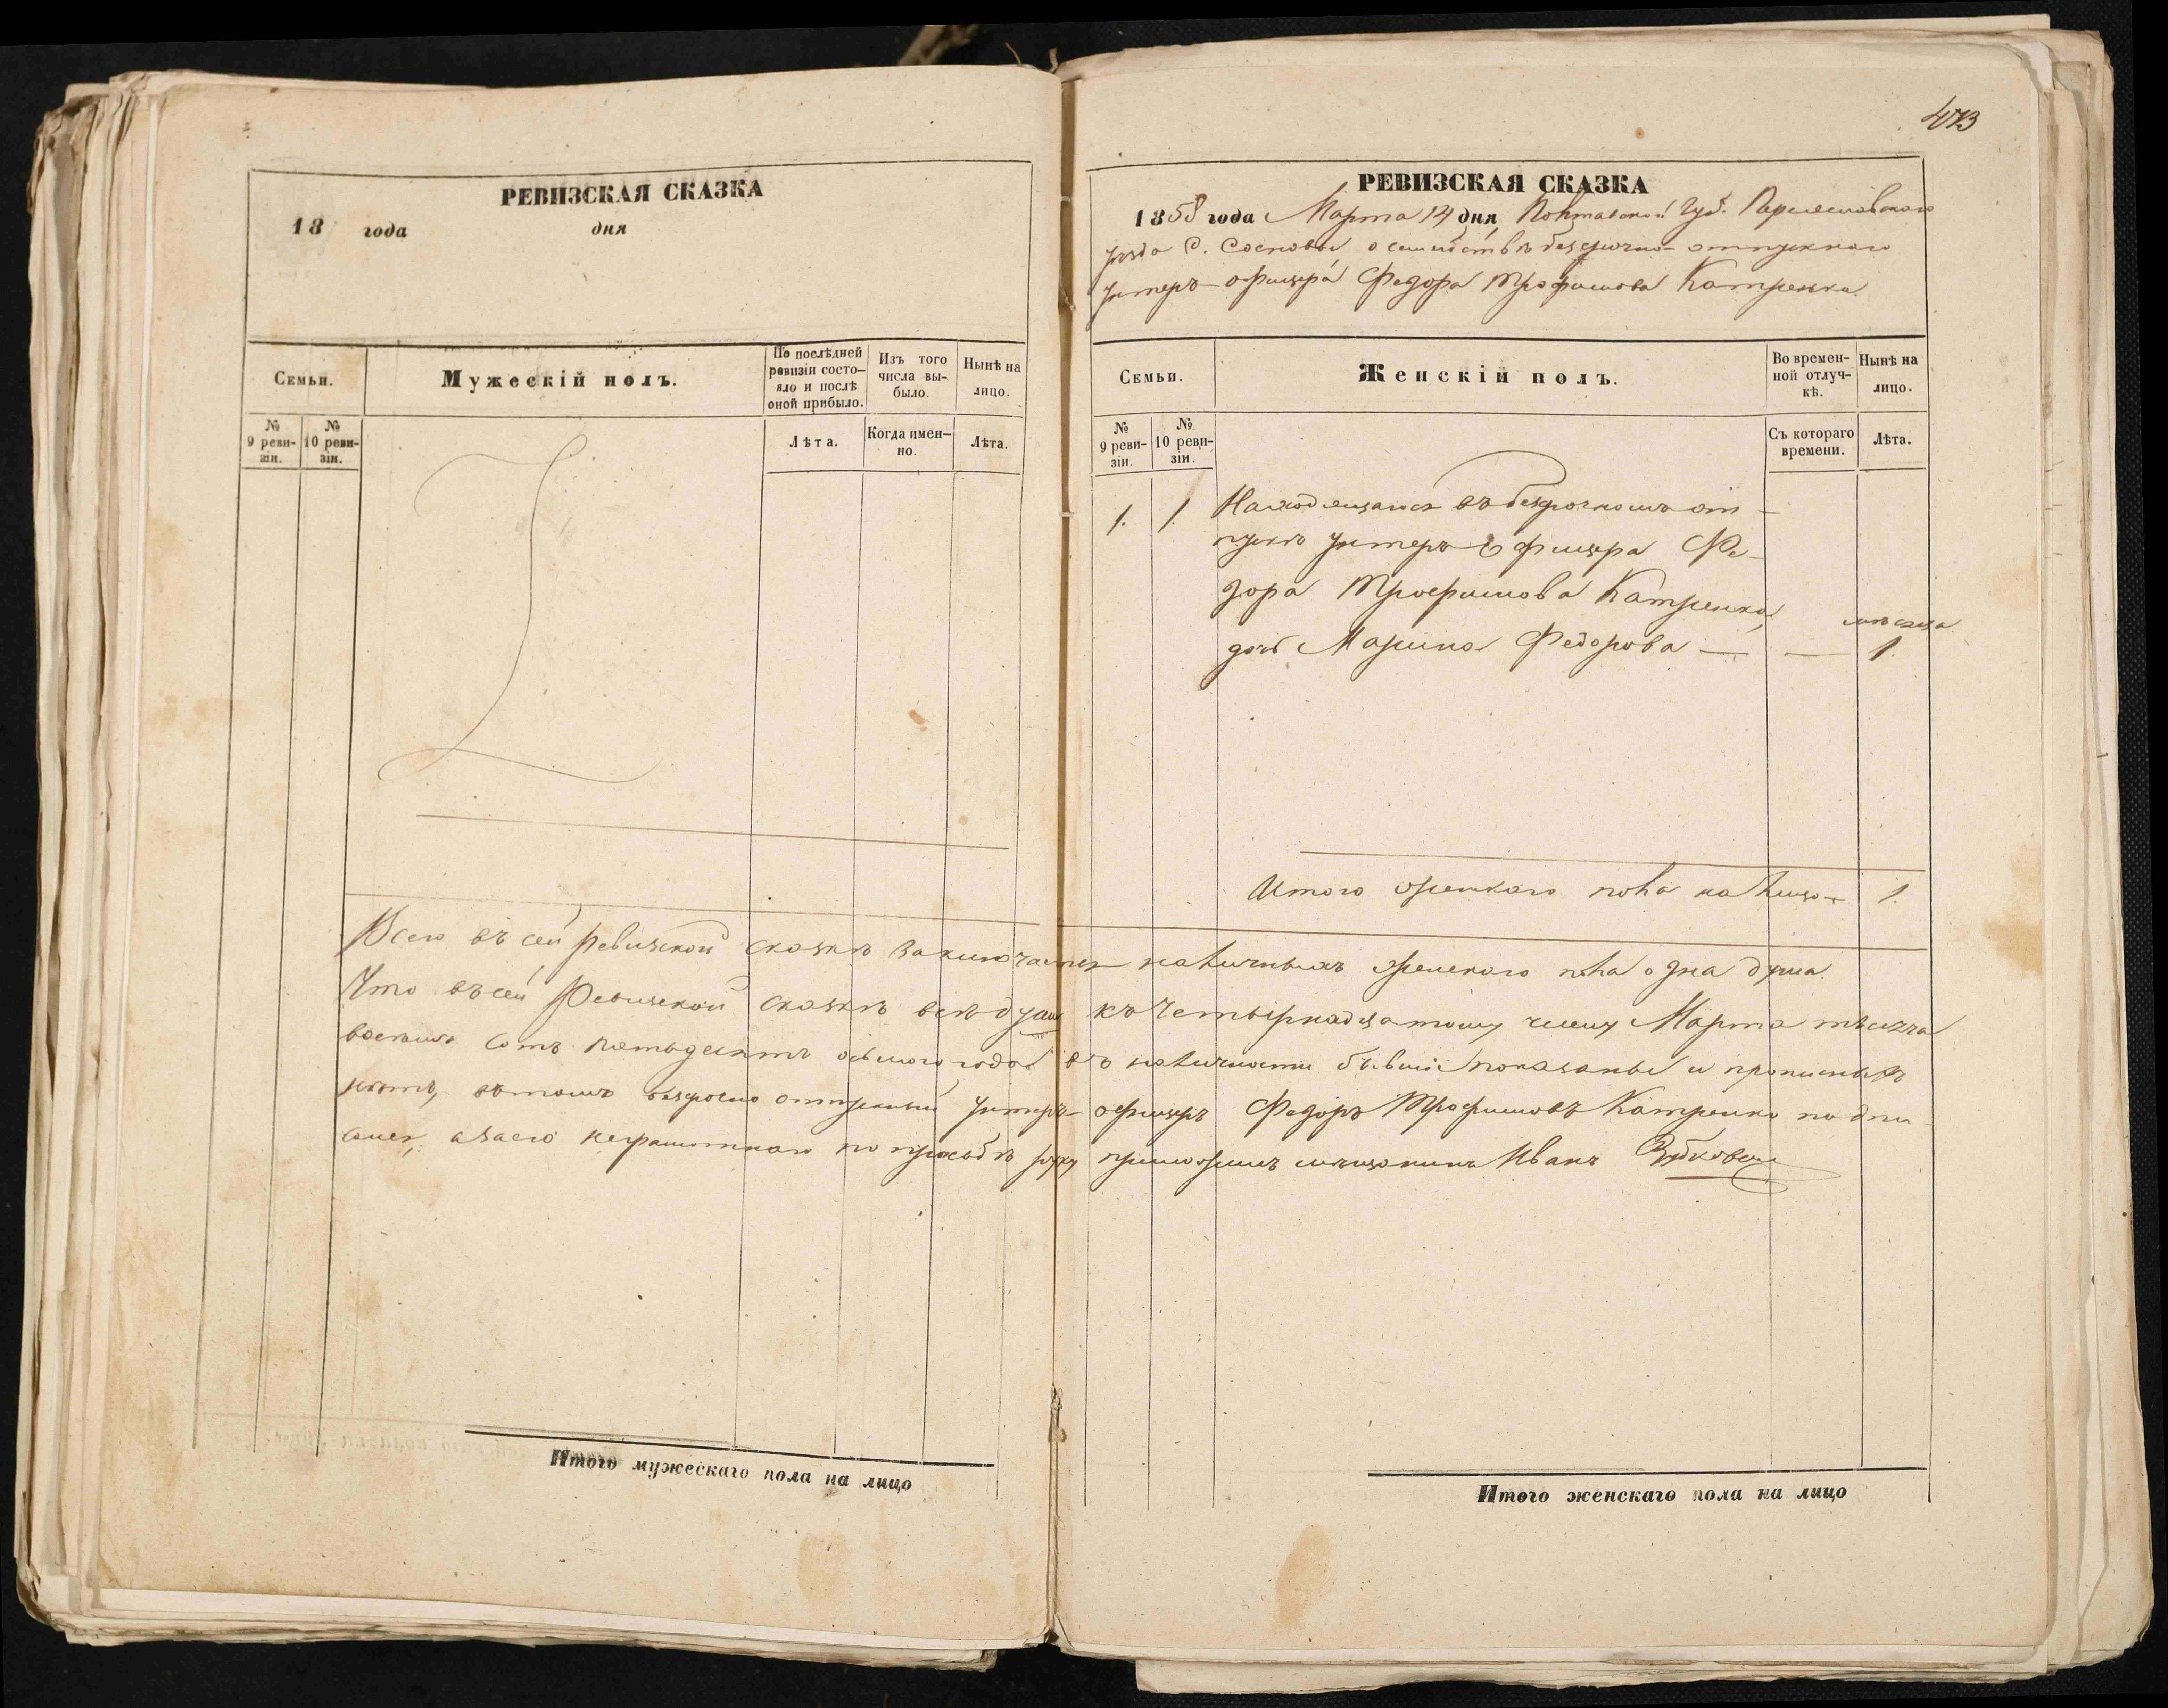 473
РЕВИЗСКАЯ СКАЗКА
18 года дня
Семьи.
Мужескій полъ.
По послѣдней ревизіи состо-
яло и послѣ
оной прибыло.
Изъ того
числа вы-
было.
Нынѣ на
лицо.
№
9 реви-
зіи.
№
10 реви-
зіи.
Лѣта.
Когда имен-
но.
Лѣта.
РЕВИЗСКАЯ СКАЗКА
1858 года Марта 14 дня, Полтавской Губ. Переяславскаго
уезда С. Сосновы о семействѣ безсрочно-отпускнаго
унтеръ-офицера Федора Трофимова Катренка.
Семьи.
Женскій полъ.
Во времен-
ной отлуч-
кѣ.
Нынѣ на
лицо.
№
9 реви-
зіи.
№
10 реви-
зіи.
Съ котораго
времени.
Лѣта.
1. 1. Находящагося въ безсрочномъ от-
пускѣ унтеръ Офицера Фе-
дора Трофимова Катренка,
дочь Марина Федорова — — мѣсяца 1.
Итого женскаго пола на лицо — 1.
Всего въ сей ревизской сказкѣ заключается наличныхъ женскаго пола одна душа.
Что въ сей Ревизской сказкѣ всѣ души къ четырнадцатому числу Марта мѣсяца
восемь сотъ пятьдесятъ осьмого года въ наличности бывшіе показаны и прописныхъ
нѣтъ, въ томъ безсрочно отпускный унтеръ-офицеръ Федоръ Трофимовъ Катренко подпи
сался, а за его неграмотнаго по просьбѣ руку приложилъ мѣщанинъ Иванъ
Итого мужескаго пола на лицо
Итого женскаго пола на лицо